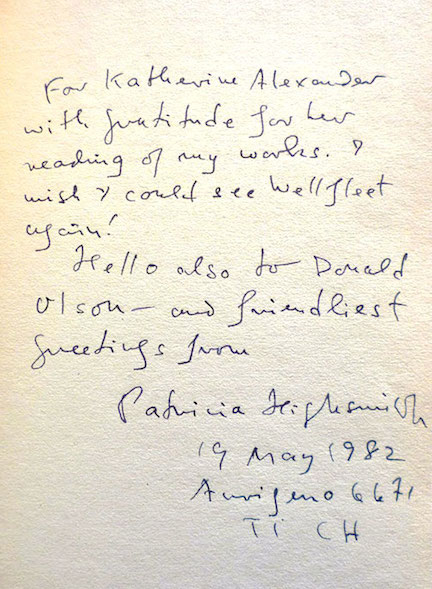 For Katherine Alexander
with gratitude for her
reading of my works. I
wish I could see Wellfleet
again!
Hello also to Donald
Olson — and friendliest
greetings from
Patricia Highsmith
19 May 1982
Aurigeno 6671
TI CH